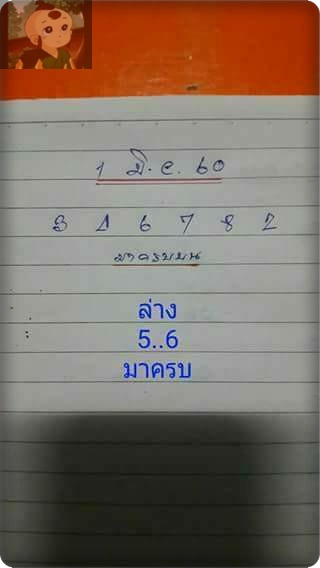 1 มี.ค. 60
3 4 6 7 8 2
มาครบบน
ล่าง
5..6
มาครบ